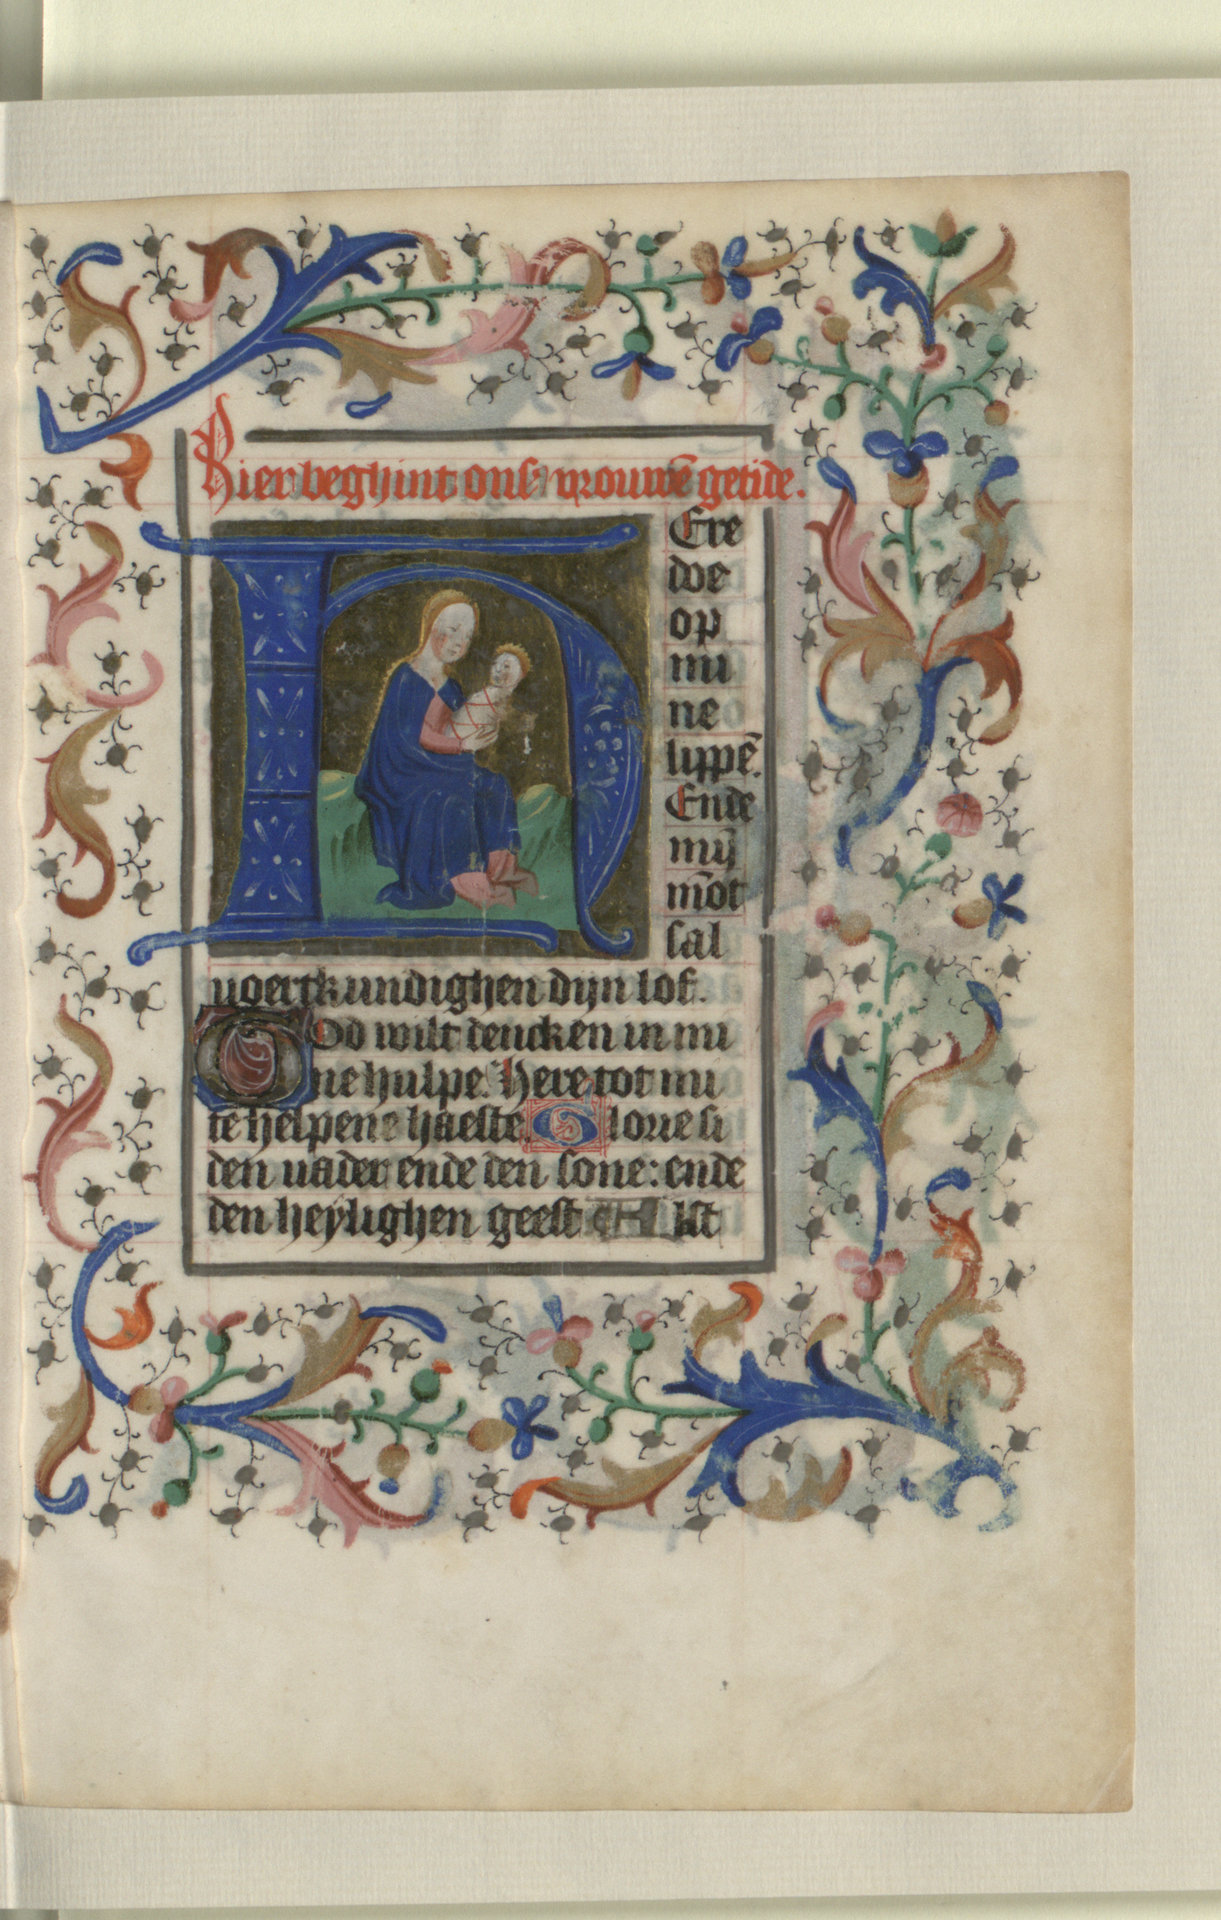 Hier beghint onser vrouwē getide.
HEre
doe
op
mi
ne
lippē.
Ende
mȳ
mōt
sal
voertkundighen dijn lof.
God wilt dencken in mi
ne hulpe. here tot mi
te helpene haeste. Glorie si
den vader ende den sone: ende
den heÿlighen geest Alst